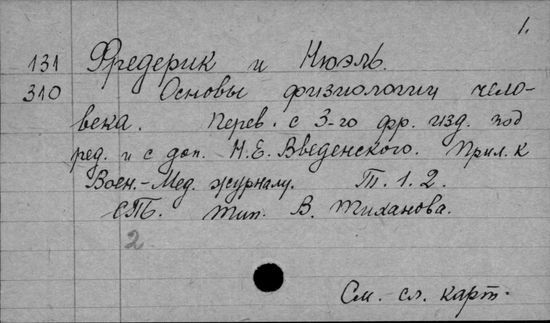 1.
131 Фредерик и Нюэль.
310 Основы физиологии чело-
века. Перев. с 3-го фр. изд. под
ред. и с доп. Н.Е. Введенского. Прил. к
Воен.-Мед. журналу. Т. 1. 2.
СПБ. Тип. В. Тиханова.
2
См. сл. карт.